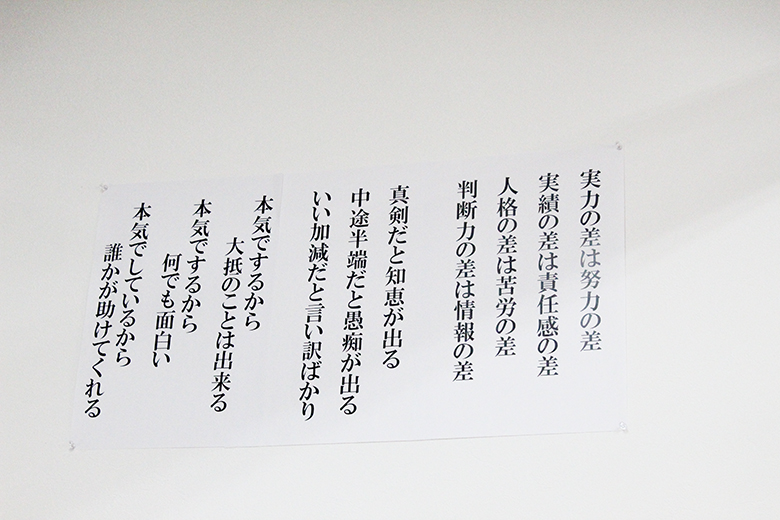 実力の差は努力の差
実績の差は責任感の差
人格の差は苦労の差
判断力の差は情報の差
真剣だと知恵が出る
中途半端だと愚痴が出る
いい加減だと言い訳ばかり
本気でするから
大抵のことは出来る
本気でするから
何でも面白い
本気でしているから
誰かが助けてくれる